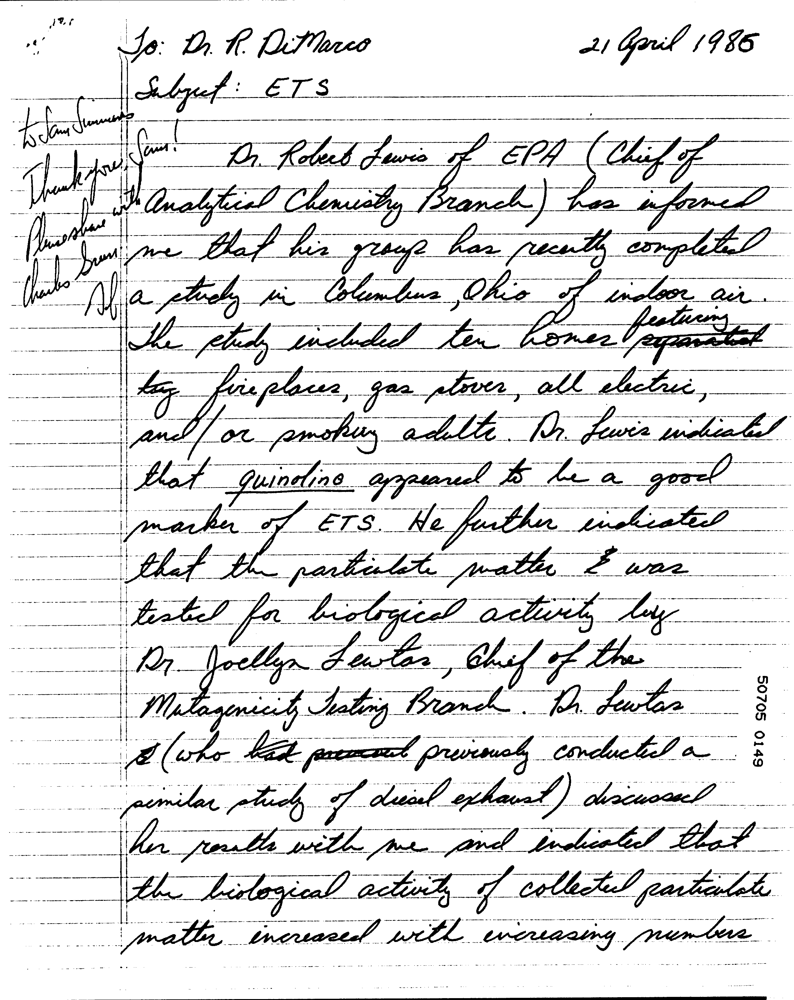 To: Dr. R. DiMarco 21 April 1985
Subject: ETS
to Sam Simmons
Thank you, Sam!
Please share with
Charles Green
Dr. Robert Lewis of EPA (Chief of
Analytical Chemistry Branch) has informed
me that his group has recently completed
a study in Columbus, Ohio of indoor air.
The study included ten homes featuring
fireplaces, gas stoves, all electric,
and/or smoking adults. Dr. Lewis indicated
that quinoline appeared to be a good
marker of ETS. He further indicated
that the particulate matter was
tested for biological activity by
Dr. Joellyn Lewtas, Chief of the
Mutagenicity Testing Branch. Dr. Lewtas
(who had previously conducted a
similar study of diesel exhaust) discussed
her results with me and indicated that
the biological activity of collected particulate
matter increased with increasing numbers
50705 0149